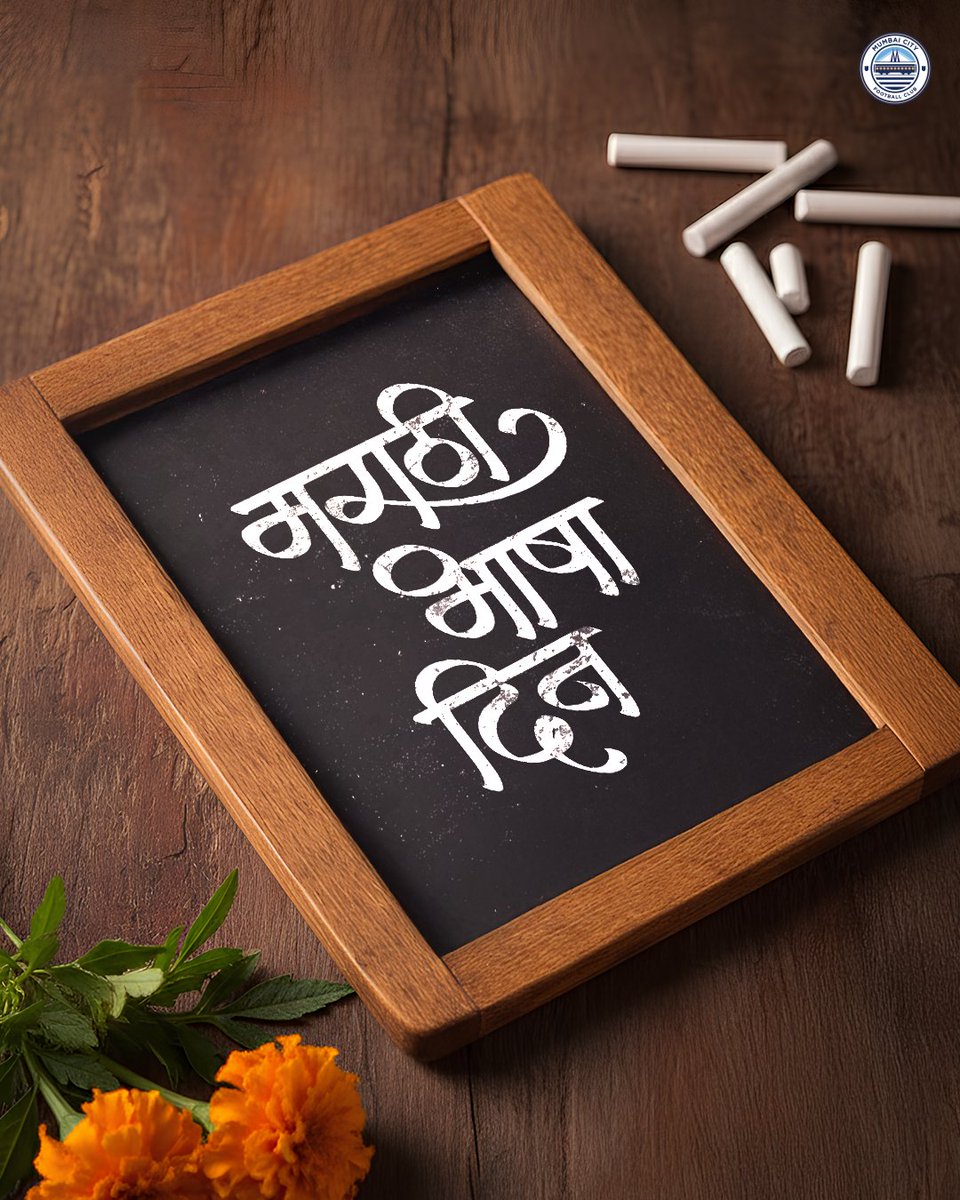 MUMBAI CITY
FOOTBALL CLUB
मराठी
भाषा
दिन